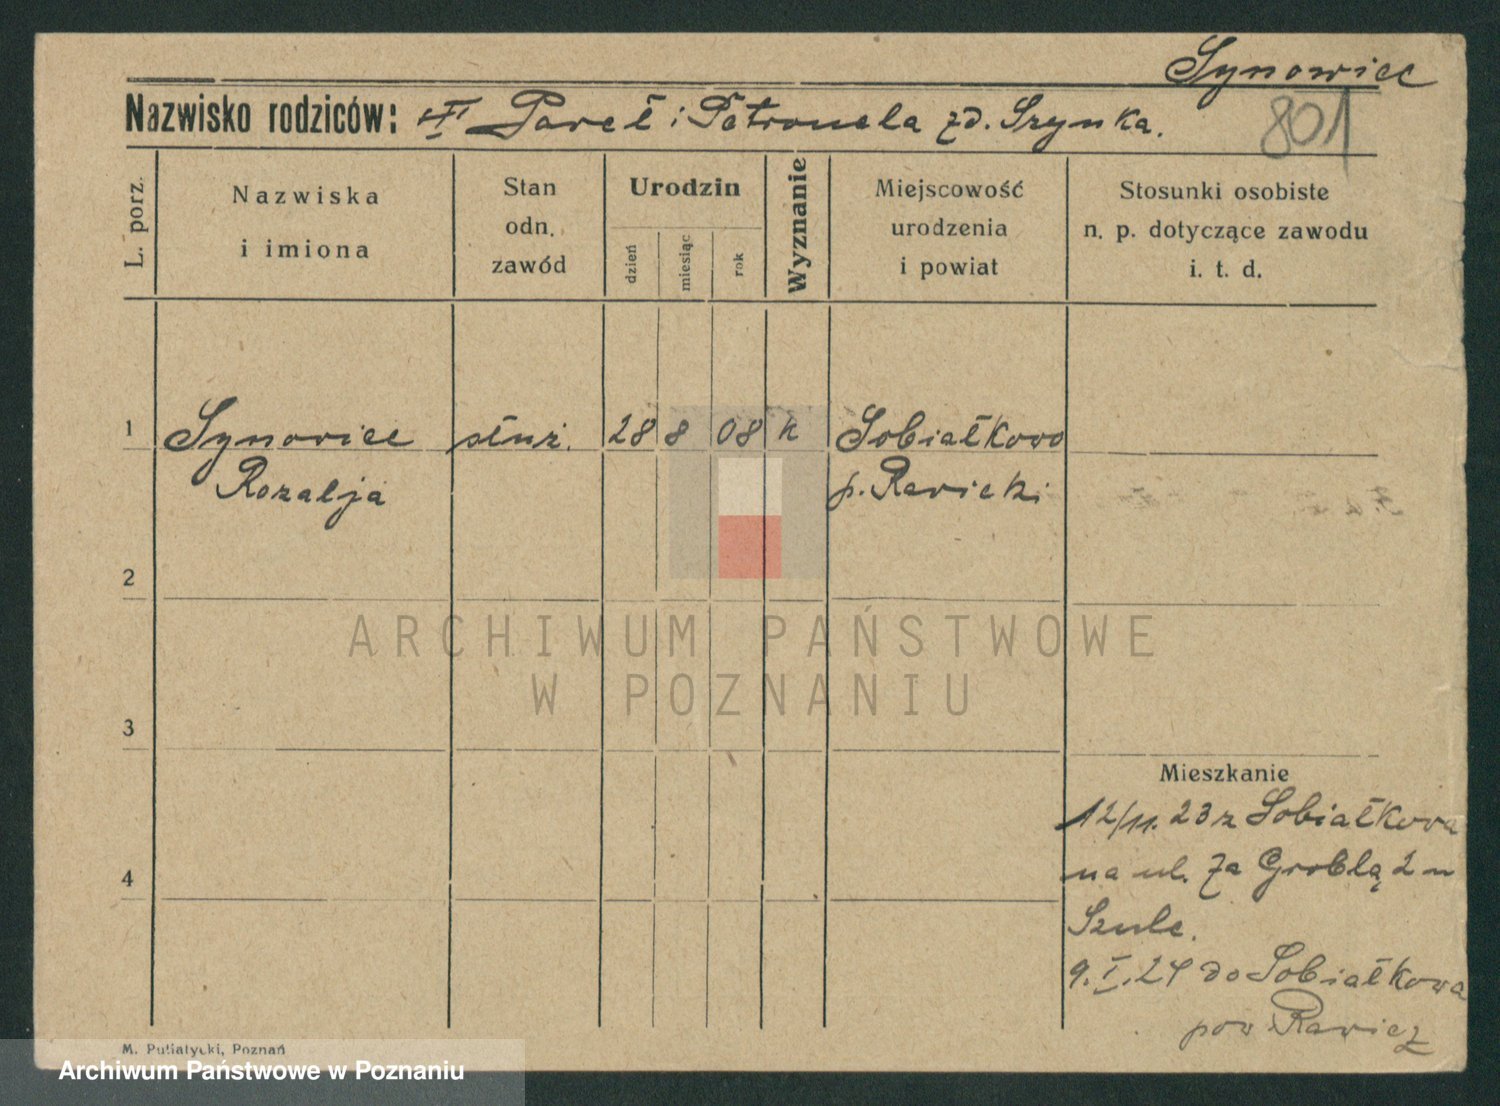 Synowiec
801
Nazwisko rodziców: Paweł i Petronela zd. Szynka.
L. porz.
Nazwiska
i imiona
Stan
odn.
zawód
Urodzin
dzień
miesiąc
rok
Wyznanie
Miejscowość
urodzenia
i powiat
Stosunki osobiste
n. p. dotyczące zawodu
i. t. d.
1 Synowiec służ. 28 8 08 k Sobiałkowo
Rozalja p. Rawicki
2
3
4
Mieszkanie
12/11. 23 z Sobiałkowa
na ul. Za Groblą 2 u
Szulc.
9. I. 24 do Sobiałkowa
pow Rawicz
ARCHIWUM PAŃSTWOWE
W POZNANIU
M. Putiatycki, Poznań
Archiwum Państwowe w Poznaniu